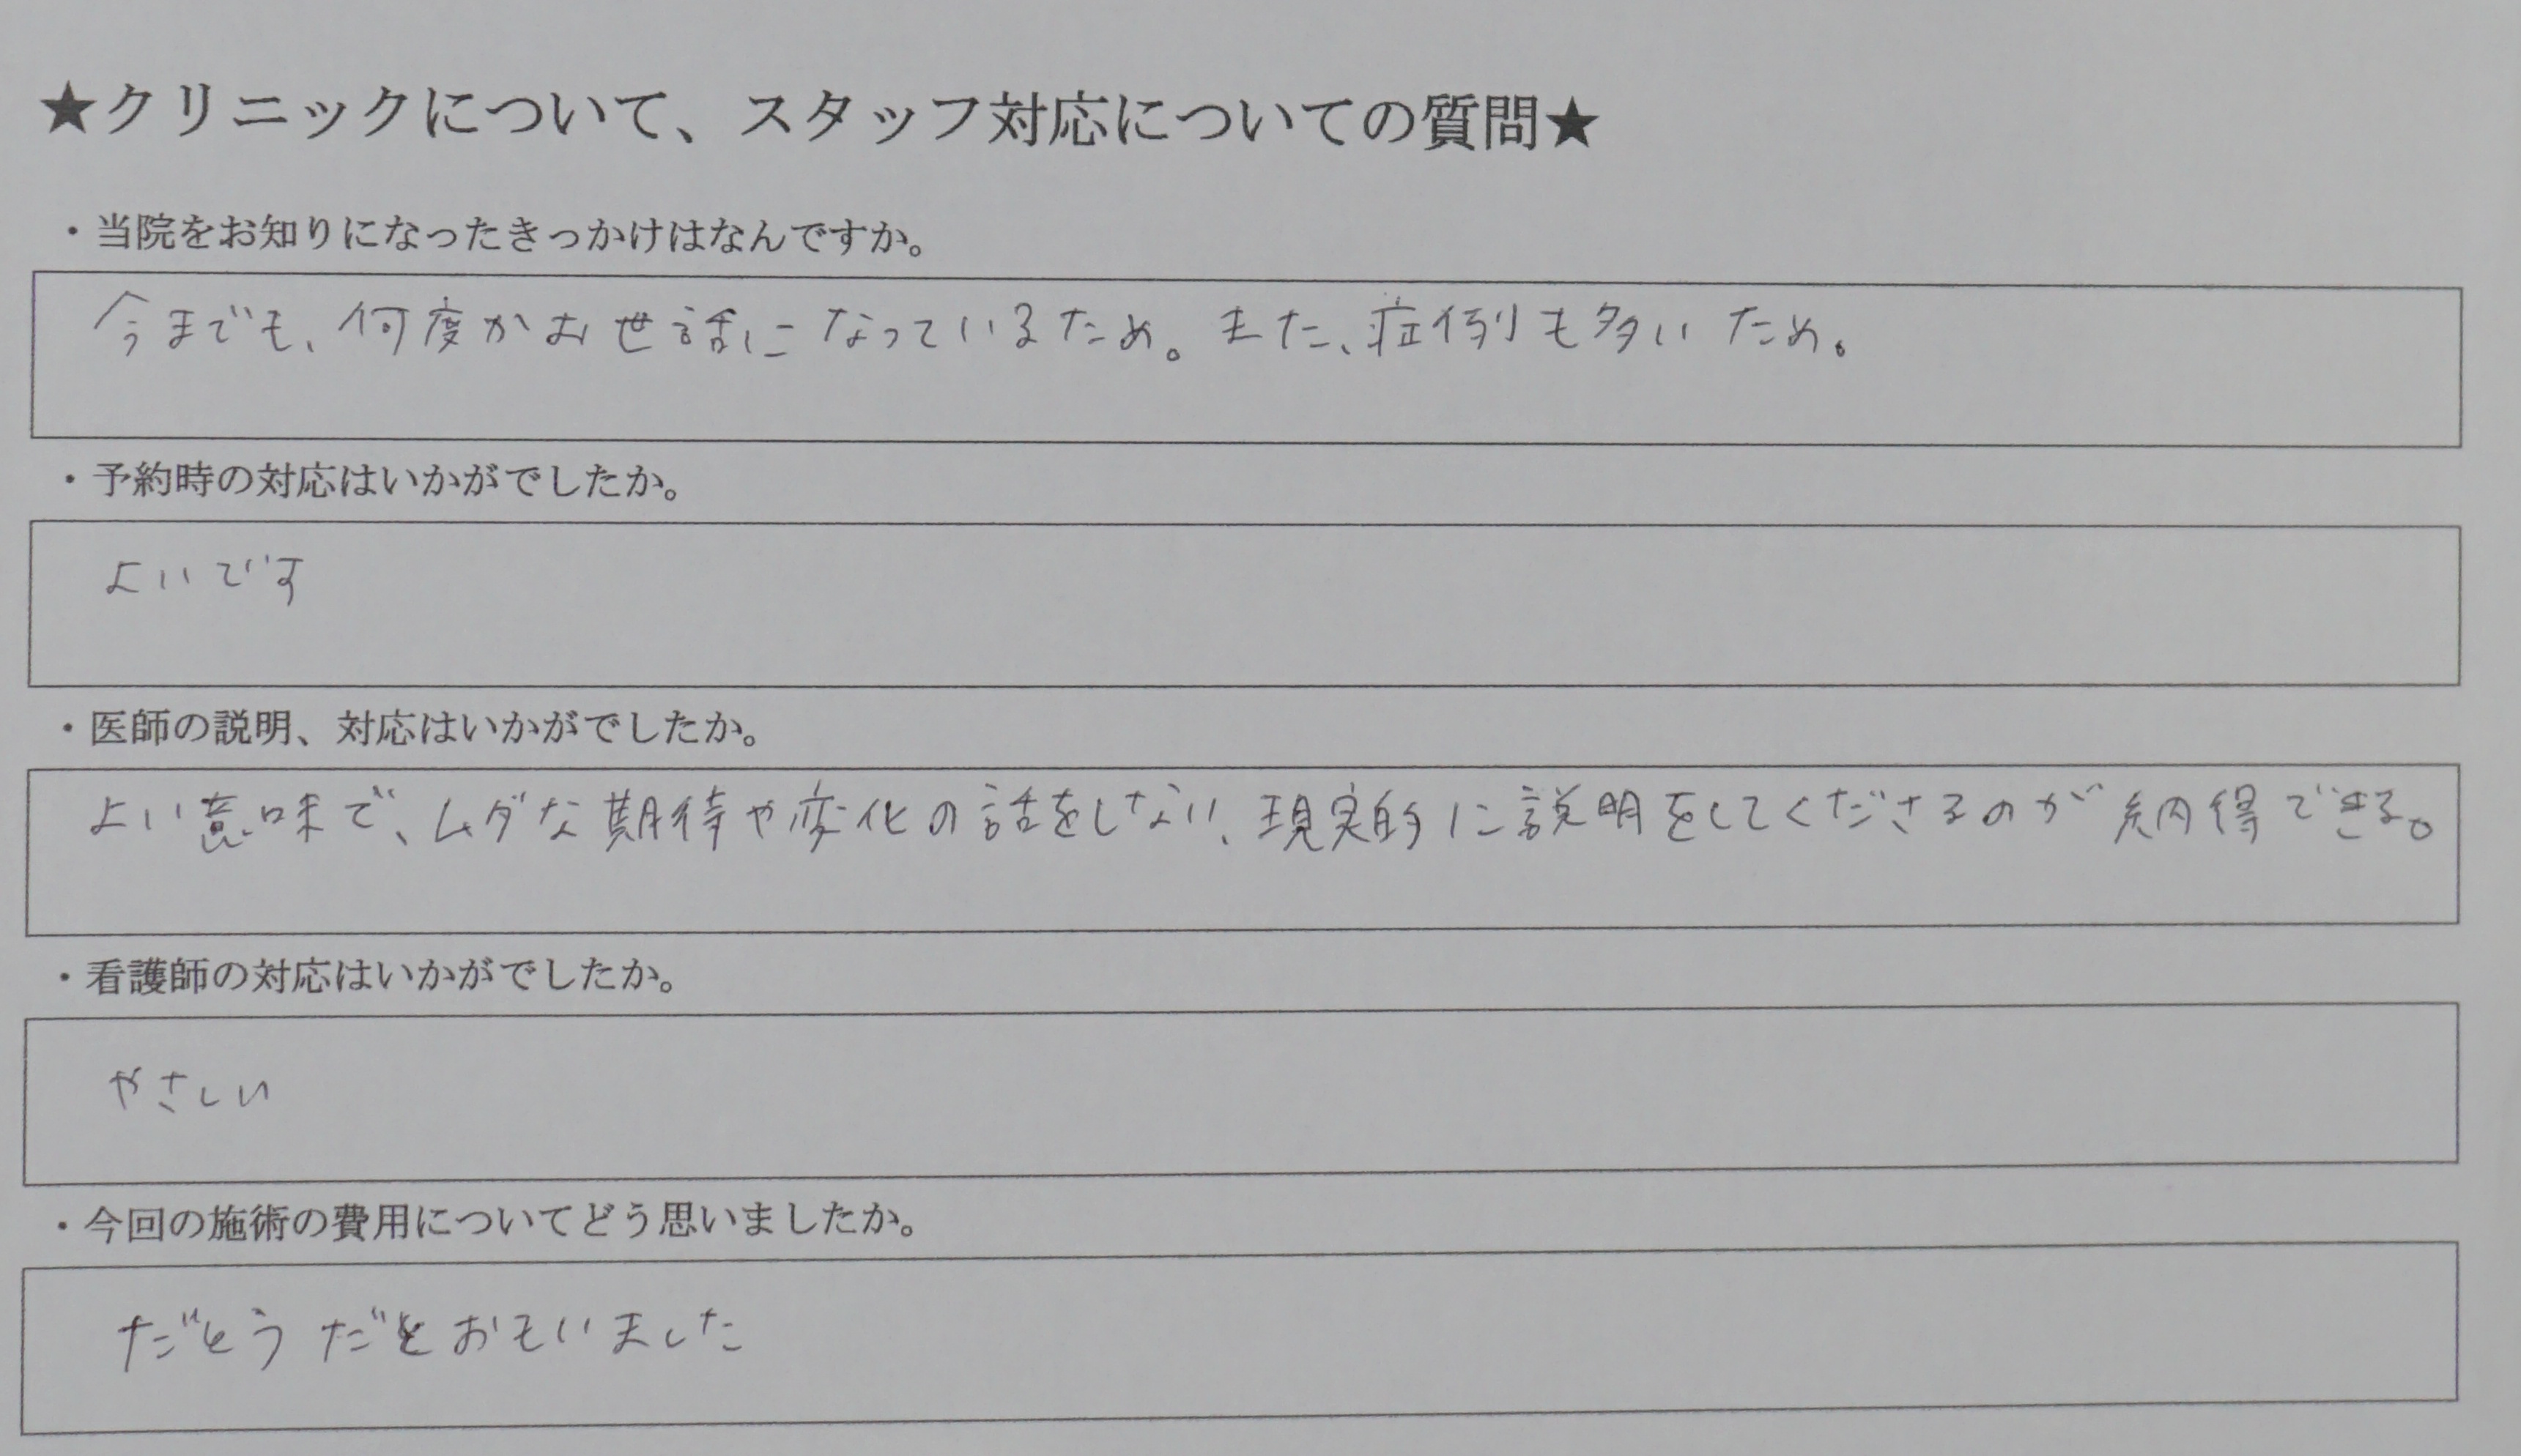 ★クリニックについて、スタッフ対応についての質問★
・当院をお知りになったきっかけはなんですか。
今までも、何度かお世話になっているため。また、症例も多いため。
・予約時の対応はいかがでしたか。
よいです
・医師の説明、対応はいかがでしたか。
よい意味で、ムダな期待や変化の話をしない、現実的に説明をしてくださるのが納得できる。
・看護師の対応はいかがでしたか。
やさしい
・今回の施術の費用についてどう思いましたか。
だとうだとおもいました